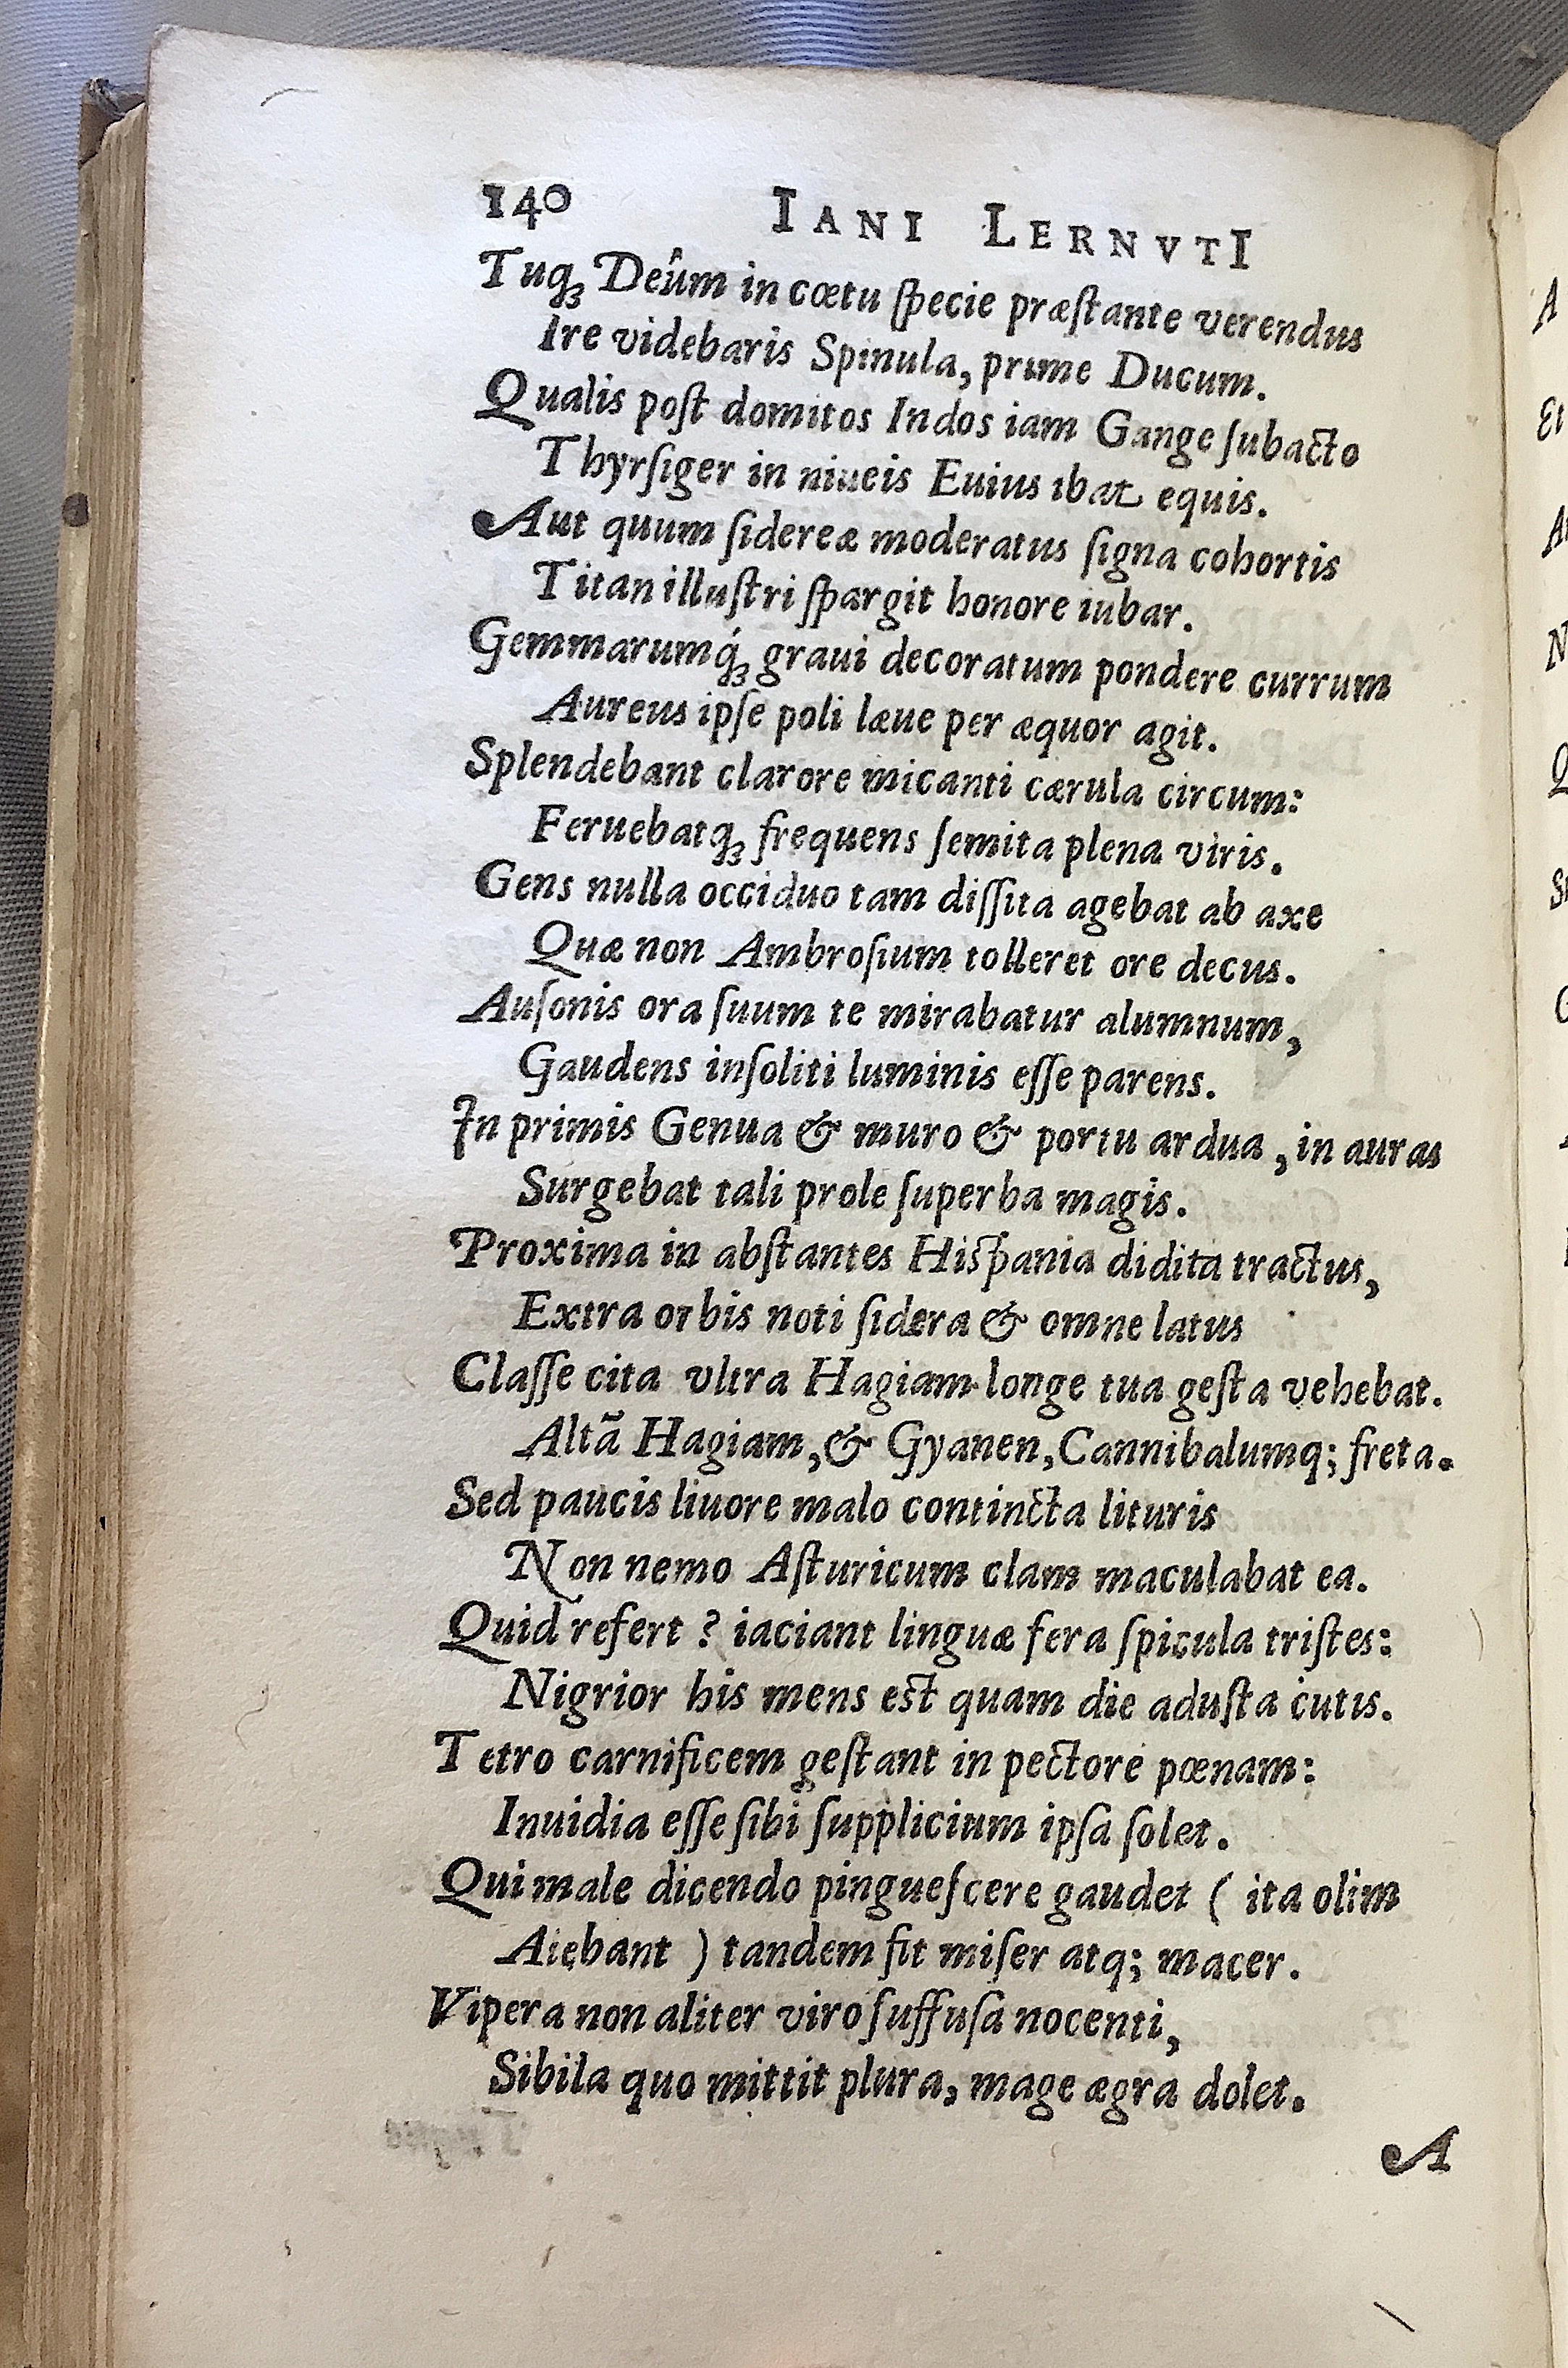 140 IANI LERNVTI
Tuq́ꝫ Deûm in cœtu ſpecie præſtante verendus
Ire videbaris Spinula, prime Ducum.
Qualis poſt domitos Indos iam Gange ſubacto
Thyrſiger in niueis Euius ibat equis.
Aut quum ſidereæ moderatus ſigna cohortis
Titan illuſtri ſpargit honore iubar.
Gemmarumq́ꝫ graui decoratum pondere currum
Aureus ipſe poli læue per æquor agit.
Splendebant clarore micanti cærula circum:
Feruebatqꝫ frequens ſemita plena viris.
Gens nulla occiduo tam diſſita agebat ab axe
Quæ non Ambroſium tolleret ore decus.
Auſonis ora ſuum te mirabatur alumnum,
Gaudens inſoliti luminis eſſe parens.
In primis Genua & muro & portu ardua, in auras
Surgebat tali prole ſuperba magis.
Proxima in abſtantes Hiſpania didita tractus,
Extra orbis noti ſidera & omne latus
Claſſe cita vltra Hagiam longe tua geſta vehebat.
Altã Hagiam, & Gyanen, Cannibalumq; freta.
Sed paucis liuore malo contincta lituris
Non nemo Aſturicum clam maculabat ea.
Quid refert? iaciant linguæ fera ſpicula triſtes:
Nigrior his mens eſt quam die aduſta cutis.
Tetro carnificem geſtant in pectore pœnam:
Inuidia eſſe ſibi ſupplicium ipſa ſolet.
Qui male dicendo pingueſcere gaudet ( ita olim
Aiebant ) tandem fit miſer atq; macer.
Vipera non aliter viro ſuffuſa nocenti,
Sibila quo mittit plura, mage ægra dolet.
A